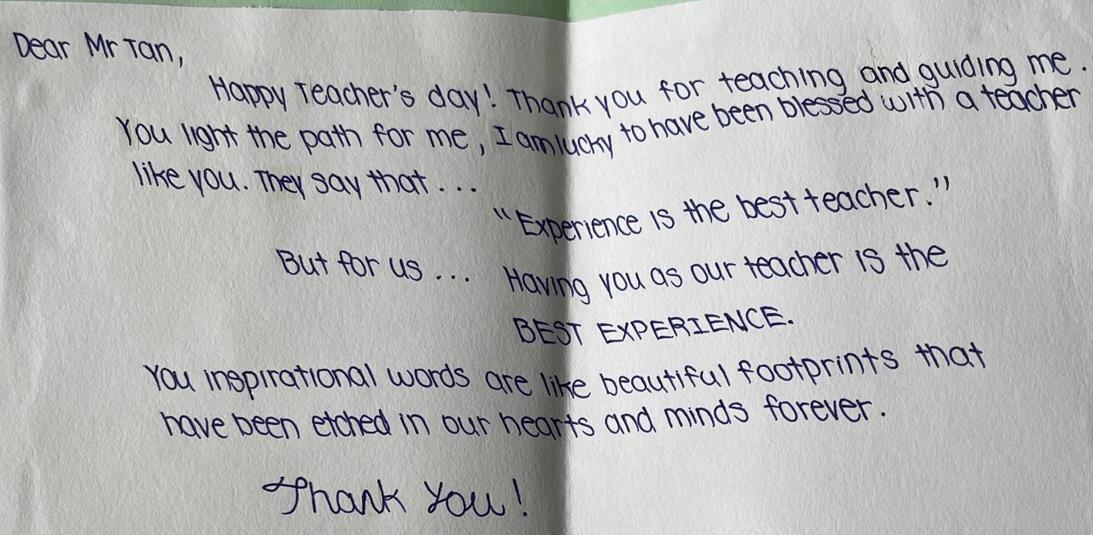 Dear Mr Tan,
Happy Teacher's day! Thank you for teaching and guiding me.
You light the path for me, I am lucky to have been blessed with a teacher
like you. They say that...
"Experience is the best teacher."
But for us... Having you as our teacher is the
BEST EXPERIENCE.
You inspirational words are like beautiful footprints that
have been etched in our hearts and minds forever.
Thank You!